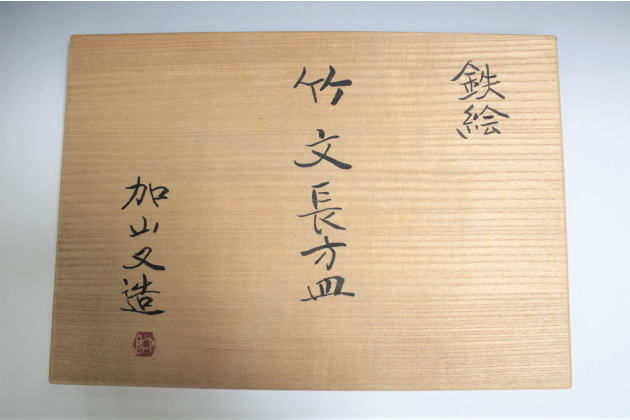 鉄絵
竹文長方皿
加山又造